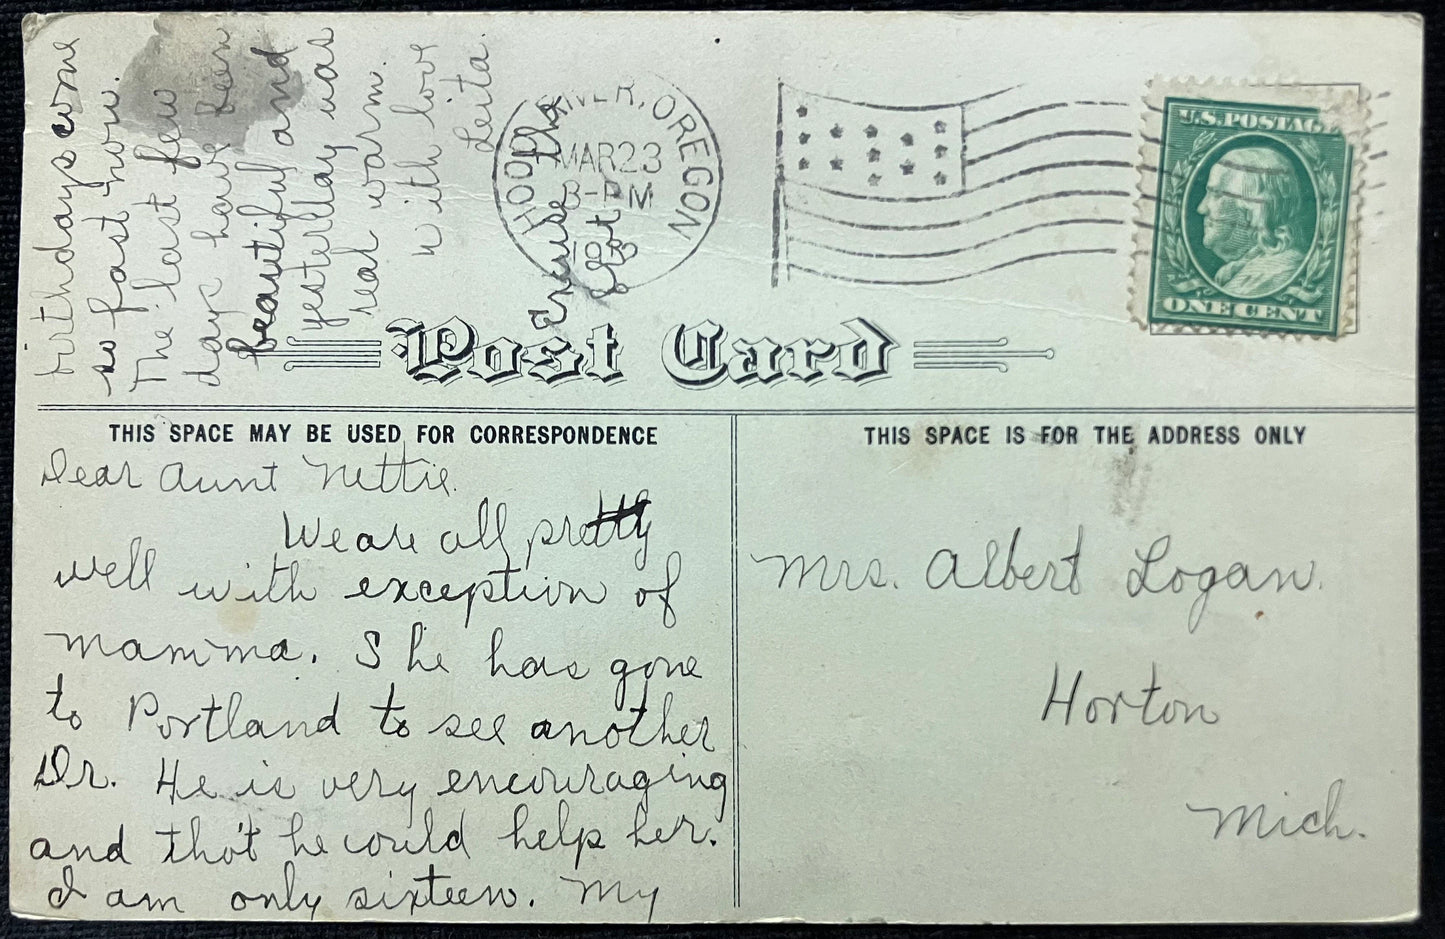 HOOD RIVER, OREGON
MAR 23
3-PM
U.S. POSTAGE
ONE CENT
Post Card
THIS SPACE MAY BE USED FOR CORRESPONDENCE
THIS SPACE IS FOR THE ADDRESS ONLY
Dear Aunt Nettie.
We are all pretty
well with exception of
mamma. She has gone
to Portland to see another
Dr. He is very encouraging
and thot he could help her.
I am only sixteen. My
birthdays come
so fast now.
The last few
days have been
beautiful and
yesterday was
real warm.
with love
Leita.
Excuse the
blot
Mrs. Albert Logan.
Horton
Mich.